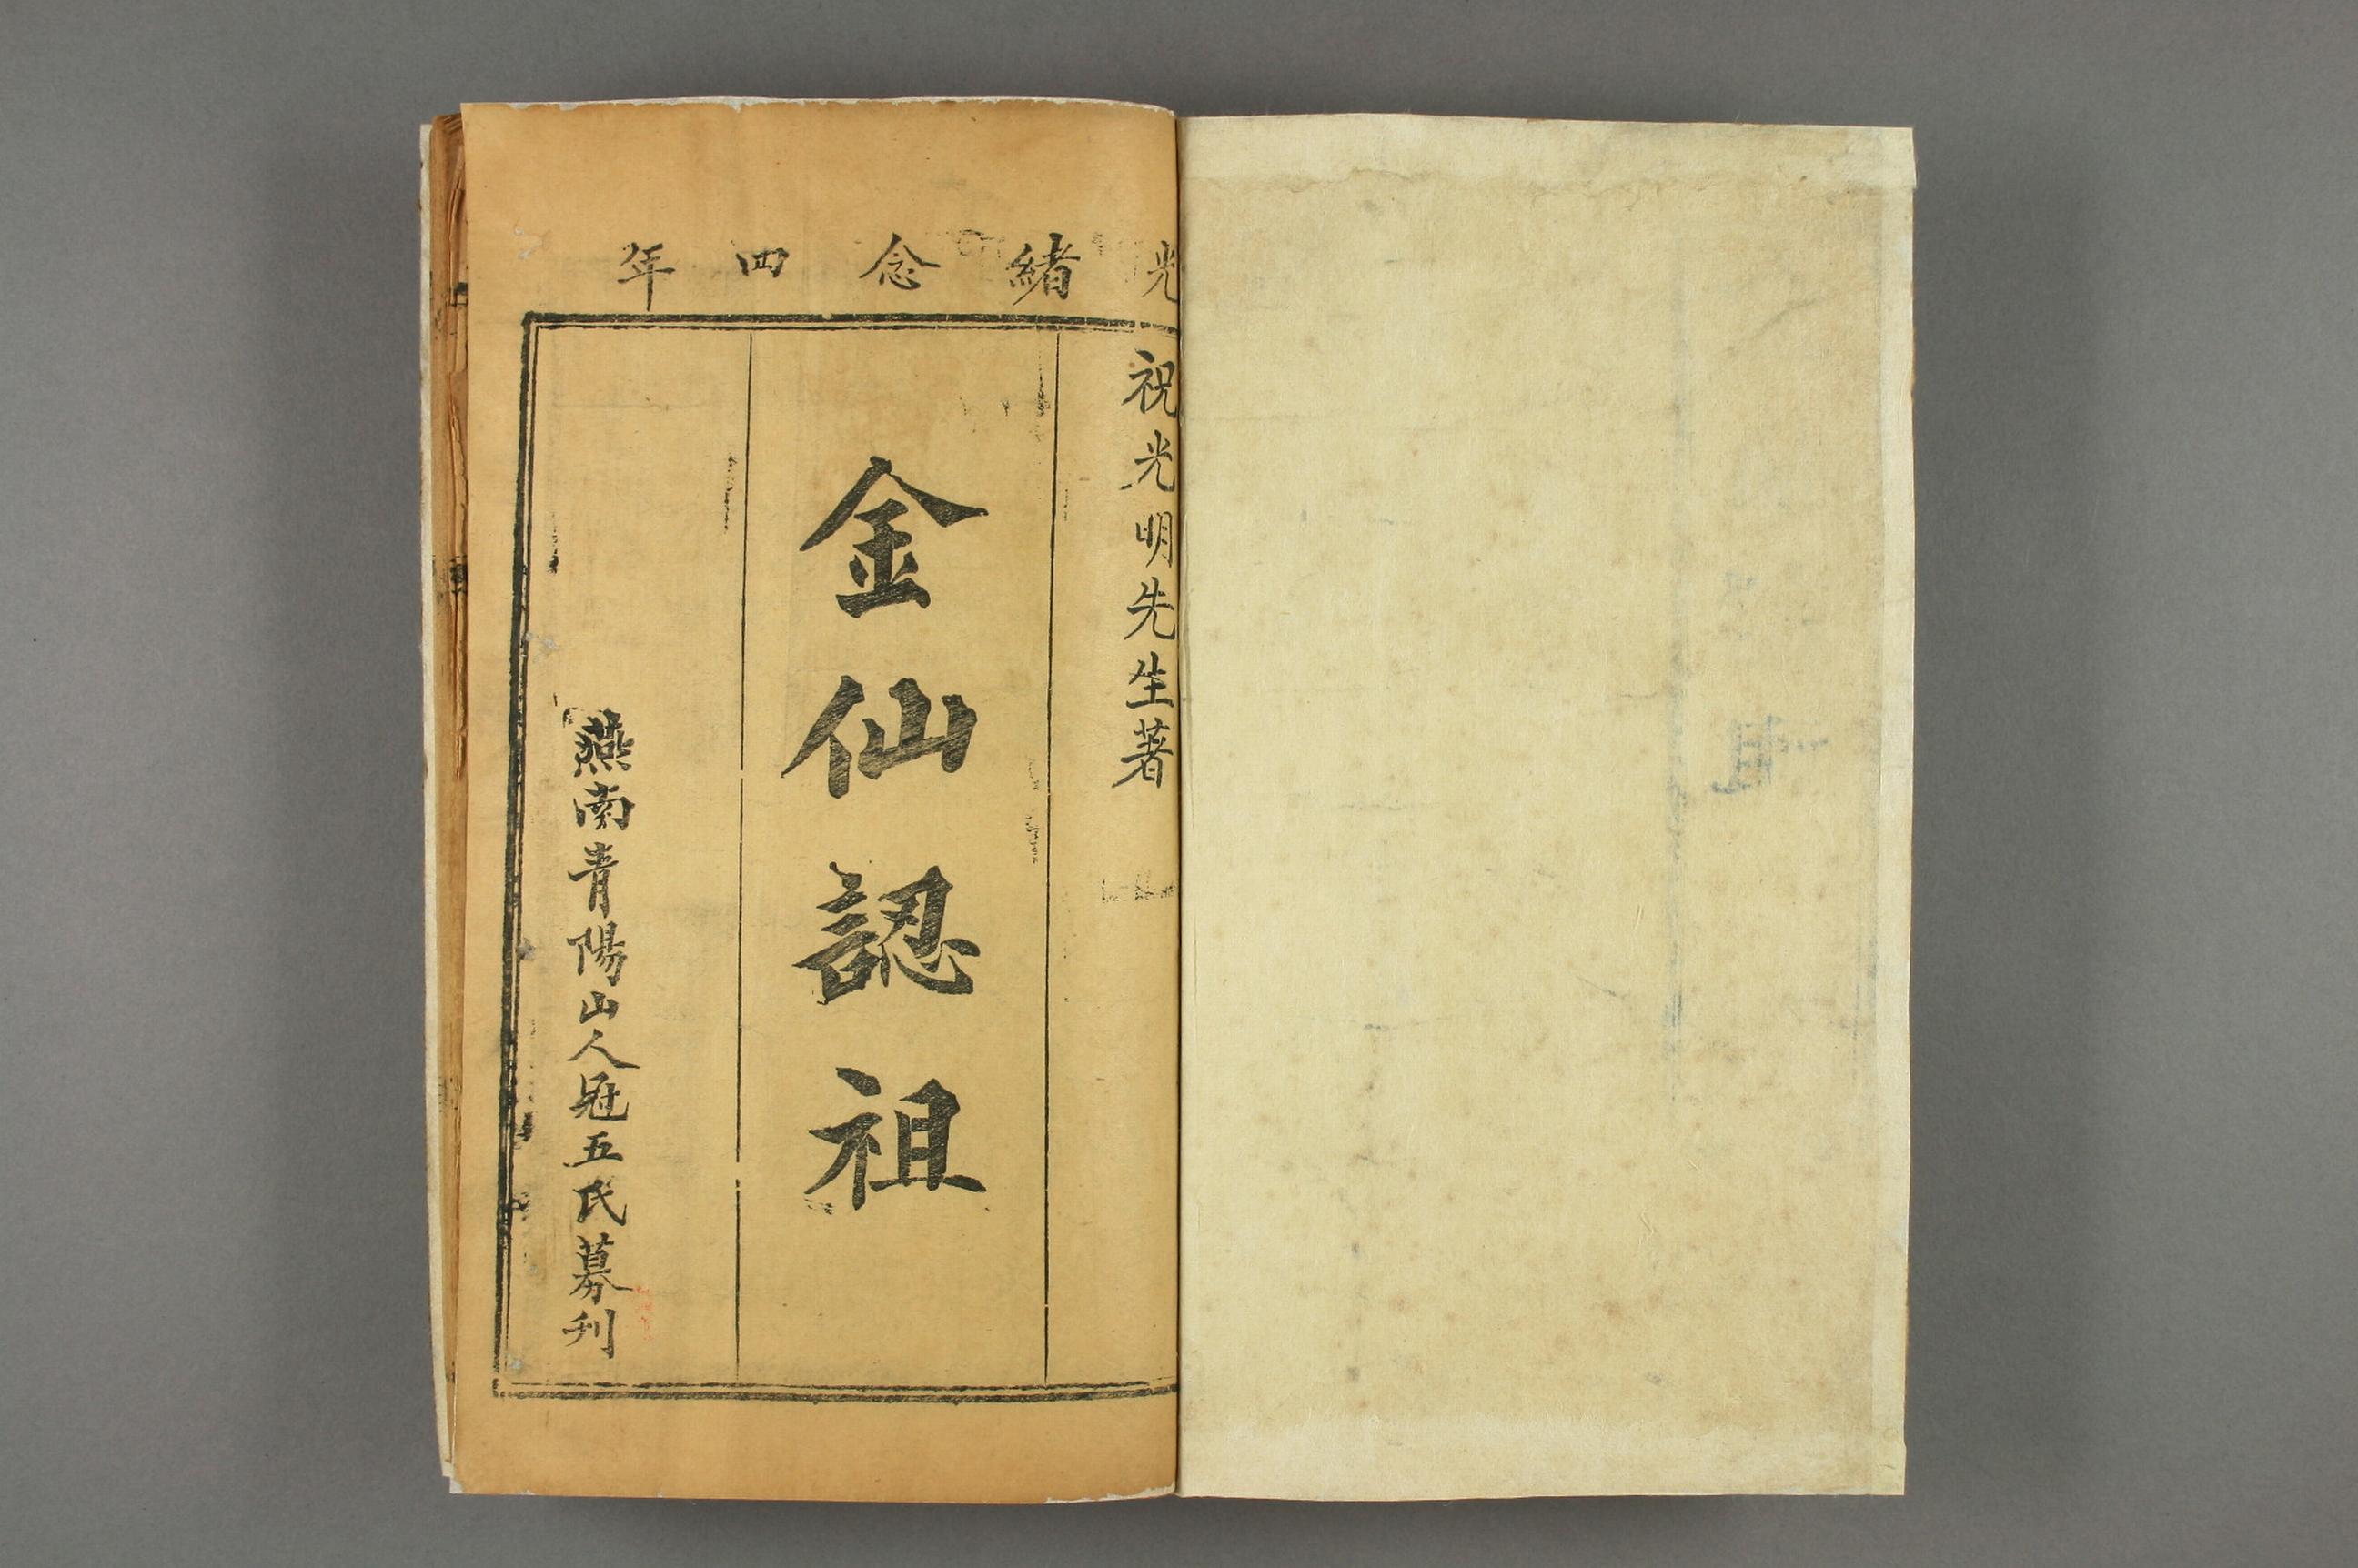 光緒念四年
祝光明先生著
金仙認祖
燕南青陽山人冠五氏募刊